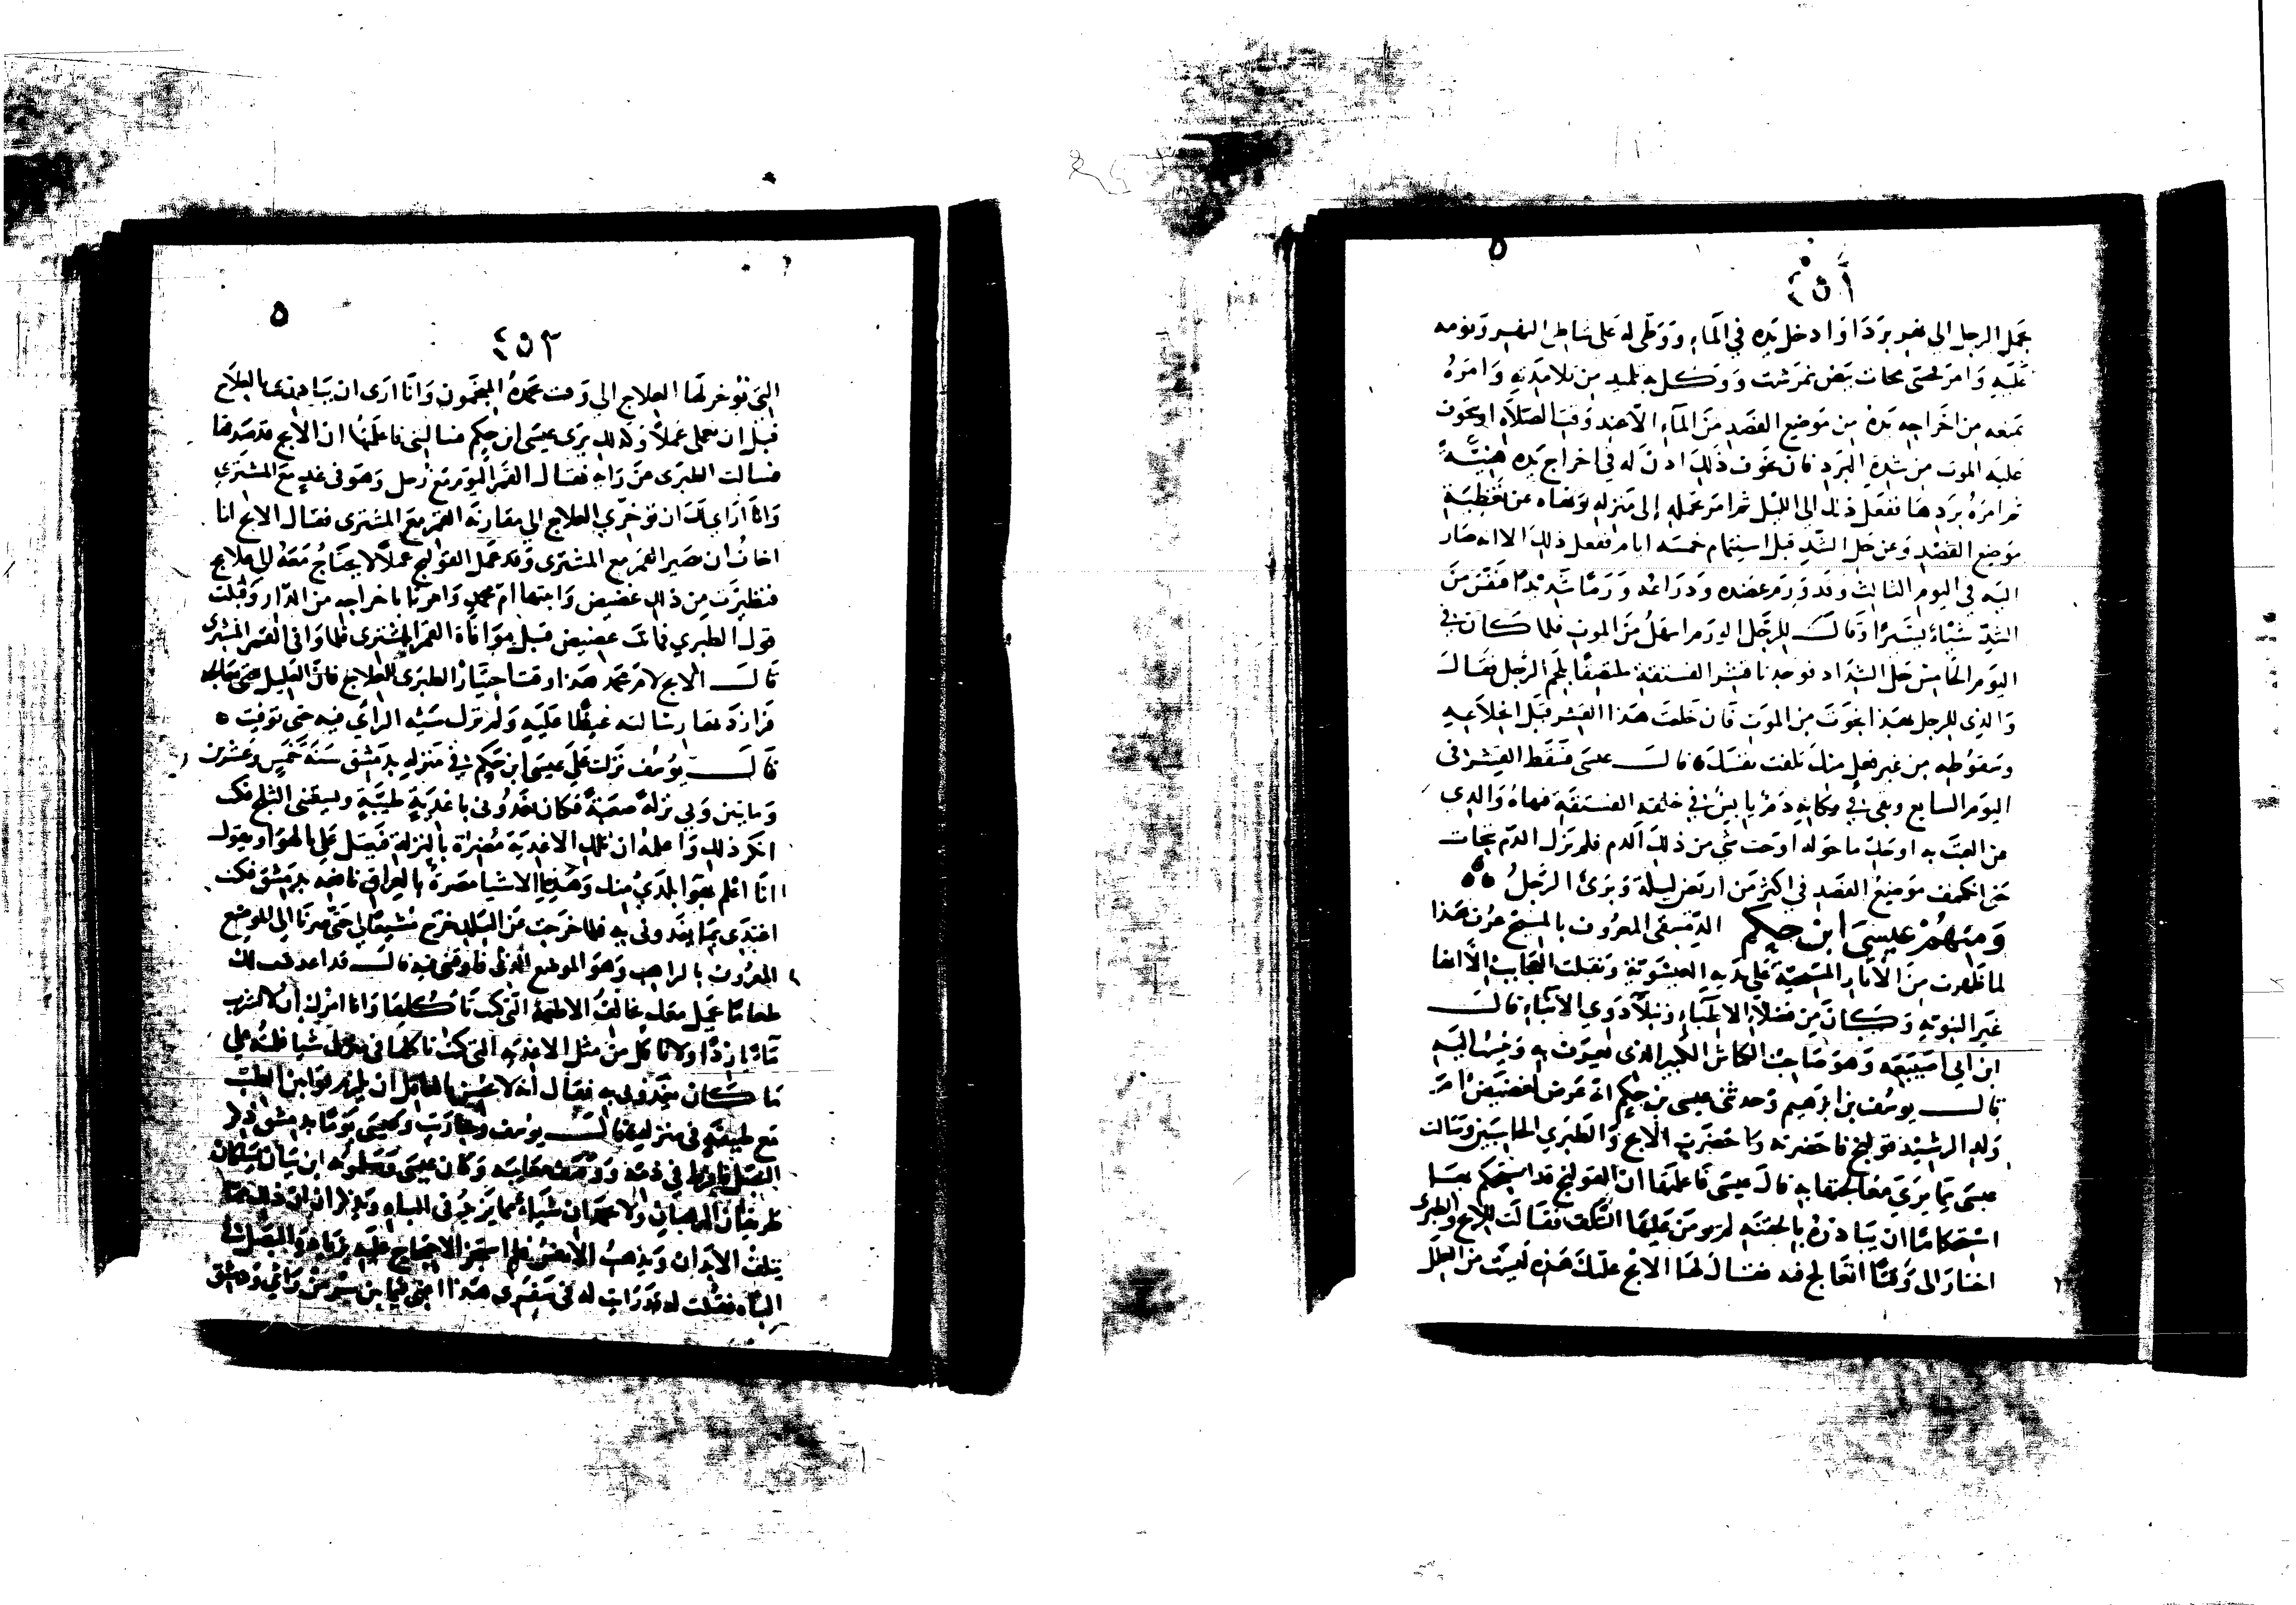 ٤٥٢
بحمل الرجل الى نهر بردا وادخل يده في الماء ووطى له على شاطى النهر ونومه
عليه وامر فحسى محات بيض نمرشت ووكل به تلميد من تلامدته وامره
بمنعه من اخراجه يده من موضع الفصد من الماء الا عند وقت الصلاه او يتخوف
عليه الموت من شدة البرد فان تخوف ذلك ادن له في اخراج يده هنيئة
ثم امره بردها ففعل ذلك الى الليل ثم امر بحمله إلى منزله ونهاه عن تغطية
موضع الفصد وعن حل الشد قبل استتمام خمسه ايام ففعل ذلك الا انه صار
اليه في اليوم الثالث وقد ورم عضده ودراعه ورما شديدا فنفس من
الشد شياء يسيرا وقال للرجل الورم اسهل من الموت فلما كان في
اليوم الخامس حل الشداد فوجدنا قشر الفستقة ملتصقا بلحم الرجل فقال
والدى للرجل بهذا نجوت من الموت فان خلعت هذا القشر قبل انخلاعه
وسقوطه من غير فعل منك تلفت نفسك ه قال عيسى فسقط القشر في
اليوم السابع وبقى في مكانه دم يابس في خلقة الفستقة فنهاه والدي
من العبث به او حك ما حوله او حت شي من ذلك الدم فلم يزل الدم يتحات
حتى انكشف موضع الفصد في اكثر من اربعين ليلة وبرئ الرجل
ومنهم عيسى ابن حكم الدمشقى المعروف بالمسيح عرف هذا
لما ظهرت من الاثار المسيحية على يديه العيسوية ونقلت العجايب الا انها
غير النبوية وكان من فضلاء الاطباء ونبلاء ذوي الانباء قال
ابن ابي اصيبعه وهو صاحب الكناش الكبير الذى يعرف به وينسب اليه
قال يوسف بن ابرهيم وحدثنى عيسى بن حكم انه عرض لغضيض ام
ولد الرشيد قولنج فاحضرته واحضرت الابح والطبري الحاسبين وسالت
عيسى بما يرى معالجتها به قال عيسى فاعلمتها ان القولنج قد استحكم بها
استحكاما ان يبادره بالحقنه لم يومن عليها التلف فقالت للابح والطبرى
اختارا لى وقتا اتعالج فيه فقال لها الابح علتك هذه ليست من العلل
٤٥٣
التي توخر لها العلاج الى وقت يحمده المنجمون وانا ارى ان تبادرى بالعلاج
قبل ان تعملى عملا وكذلك يرى عيسى ابن حكم فسالتنى فاعلمتها ان الابح قد صدقها
فسالت الطبرى عن رايه فقال القمر اليوم مع زحل وهو في غد مع المشترى
وانا ارى لك ان توخرى العلاج الى مقارنة القمر مع المشترى فقال الابح انا
اخاف ان يصير القمر مع المشترى وقد عمل القولنج عملا لا يحتاج معه الى علاج
فتطيرت من ذلك غضيض وابنتها ام محمد وامرتا باخراجه من الدار وقبلت
قول الطبري فماتت غضيض قبل موافاة القمر المشترى فلما وافى القمر المشترى
قال الابح لام محمد هذا وقت اختيار الطبرى للعلاج فاين العليل حتى نعالجه
فزادتها رسالته غيظا عليه ولم تزل سيئه الراي فيه حتى توفيت ه
قال يوسف نزلت على عيسى ابن حكم في منزله بدمشق سنة خمس وعشرين
ومايتين وبي نزلة صعبة فكان يغدونى باغدية طيبة ويسقنى الثلج فكنت
انكر ذلك واعلمه ان تلك الاغدية مضرة بالنزلة فيعتل علي بالهوا ويقول
انا اعلم بهوا بلدي منك وهذه الاشيا مضرة بالعراق نافعه بدمشق فكنت
اغتدى بما يغدونى به فلما خرجت عن البلد خرج مشيعا لى حتى صرنا الى الموضع
المعروف بالراهب وهو الموضع الذى فارقنى فيه قال قد اعددت لك
طعاما يحمل معك يخالف الاطعمة التى كنت تاكلها وانا امرك ان لا تشرب
ماء باردا ولا تاكل من مثل الاغدية التى كنت تاكلها في منزلى شيا فلمته علي
ما كان يغدونى به فقال انه لا يحسن بالعاقل ان يلزم قوانين الطب
مع ضيفه في منزله قال يوسف وتجاريت وعيسى يوما بدمشق ذكر
البصل فافرط في ذمه ووصف معايبه وكان عيسى وسلمويه ابن بنان يسلكان
طريق الرهبان ولا يحمدان شياء مما يزيد في الباه ويذكران ان ذلك مما
يتلف الابدان ويذهب الانفس فلم استجز الاحتجاج عليه بزيادة البصل في
الباه فقلت له قد رايت له في سفرى هذا اعنى فيما بين سر من راي ودمشق